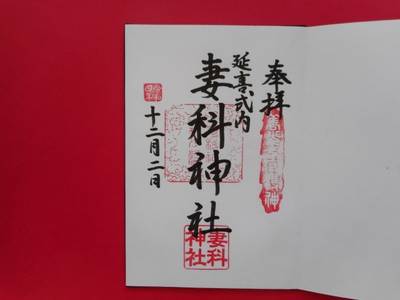 奉拝
延喜式内
妻科神社
十二月二日
妻科
神社